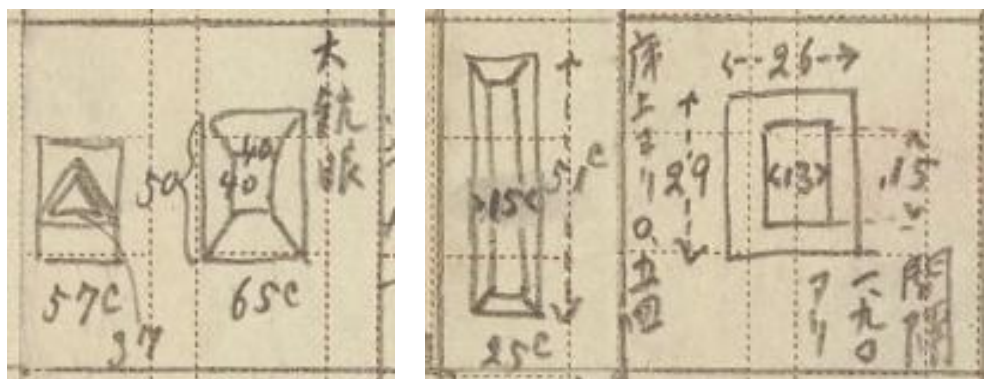 大銃眼
50
40
40
57c
65c
37
51c
15c
25c
床上ヨリ〇、五四
26
29
13
.15
間隔
一、九〇
アリ